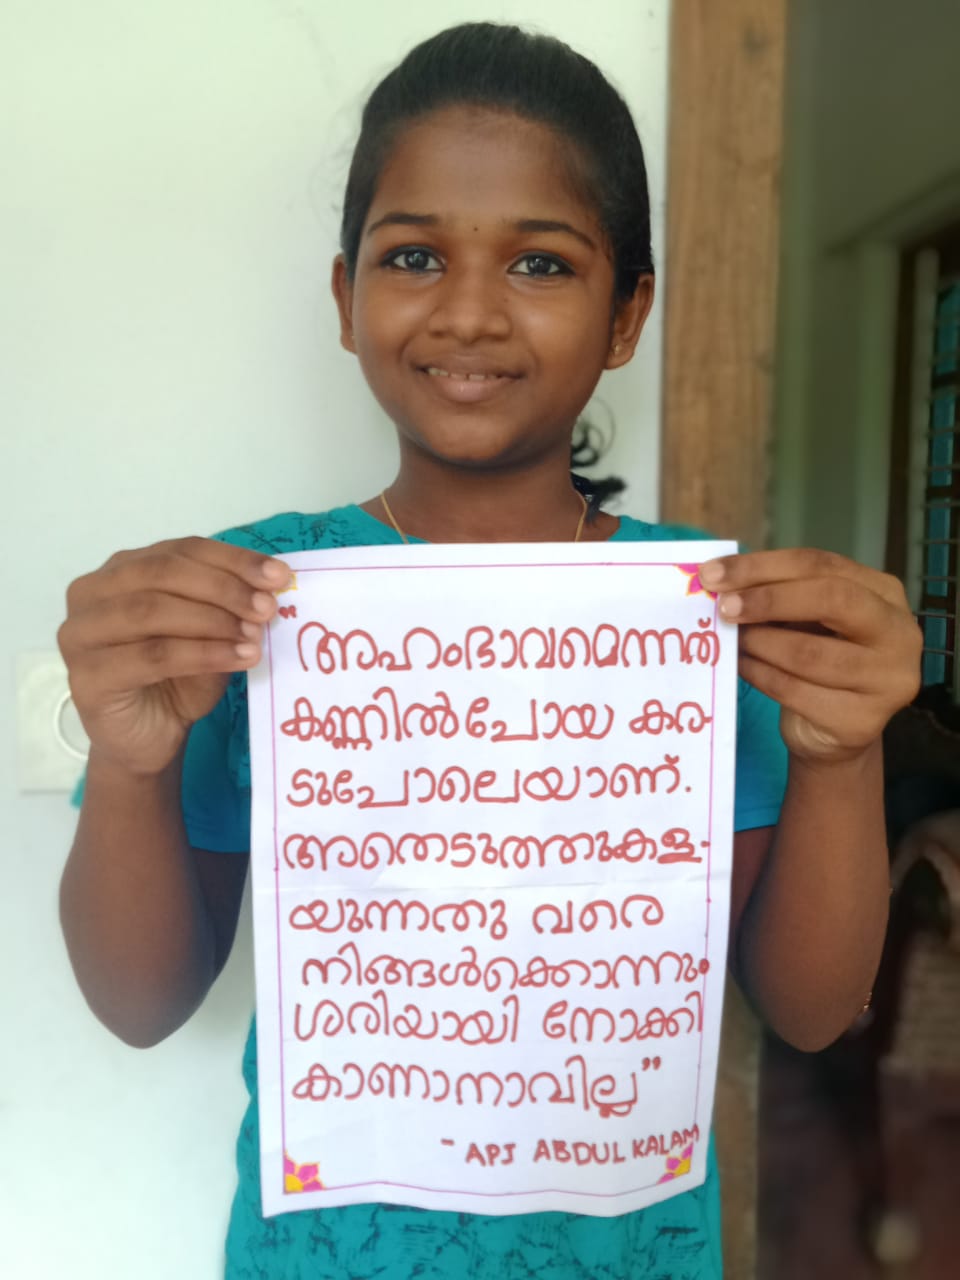 “അഹംഭാവമെന്നത്
കണ്ണിൽപോയ കര-
ടുപോലെയാണ്.
അതെടുത്തുകള-
യുന്നതു വരെ
നിങ്ങൾക്കൊന്നും
ശരിയായി നോക്കി
കാണാനാവില്ല”
- APJ ABDUL KALAM